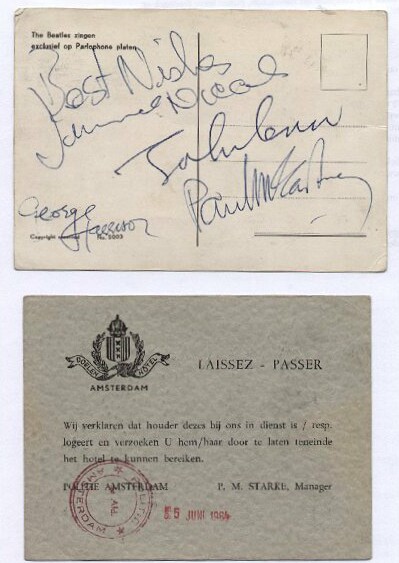 The Beatles zingen
exclusief op Parlophone platen
Best Wishes
Jimmie Nicol
John Lennon
Paul McCartney
George
Harrison
Copyright No. 5003
DOELEN HOTEL
AMSTERDAM
LAISSEZ - PASSER
Wij verklaren dat houder dezes bij ons in dienst is / resp.
logeert en verzoeken U hem/haar door te laten teneinde
het hotel te kunnen bereiken.
POLITIE AMSTERDAM P. M. STARKE, Manager
5 JUNI 1964
AMSTERDAM